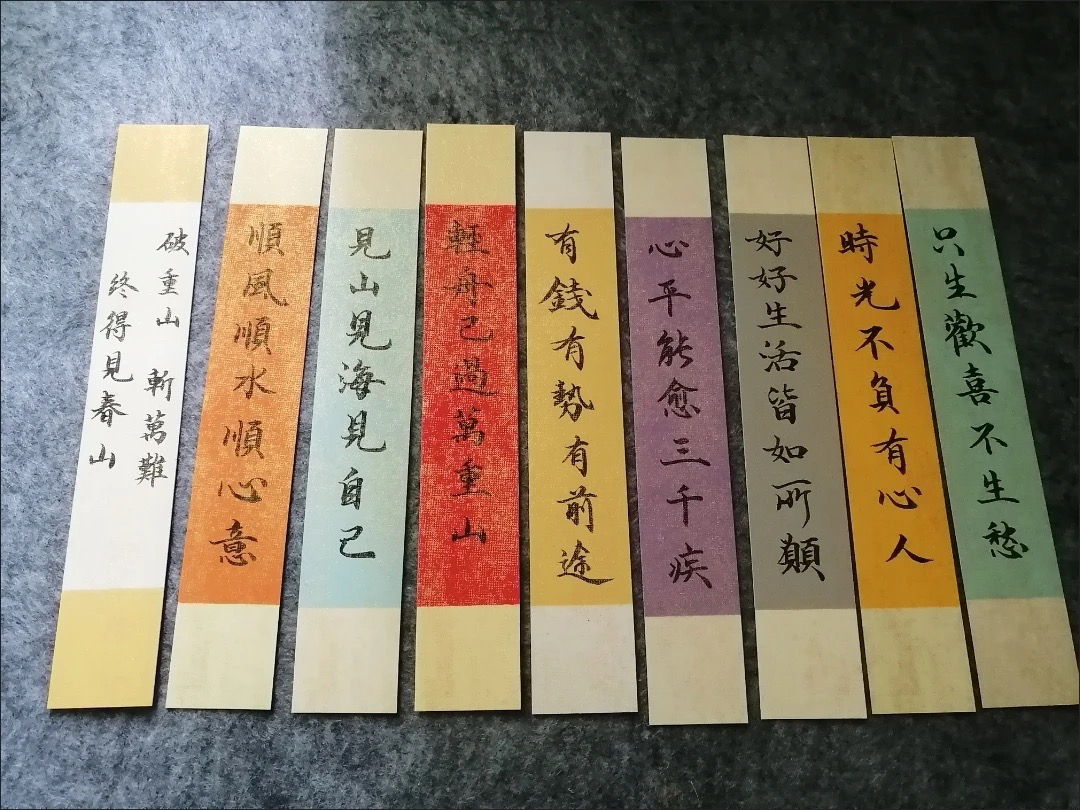 只生歡喜不生愁
時光不負有心人
好好生活皆如所願
心平能愈三千疾
有錢有勢有前途
輕舟已過萬重山
見山見海見自己
順風順水順心意
破重山 斬萬難
終得見春山